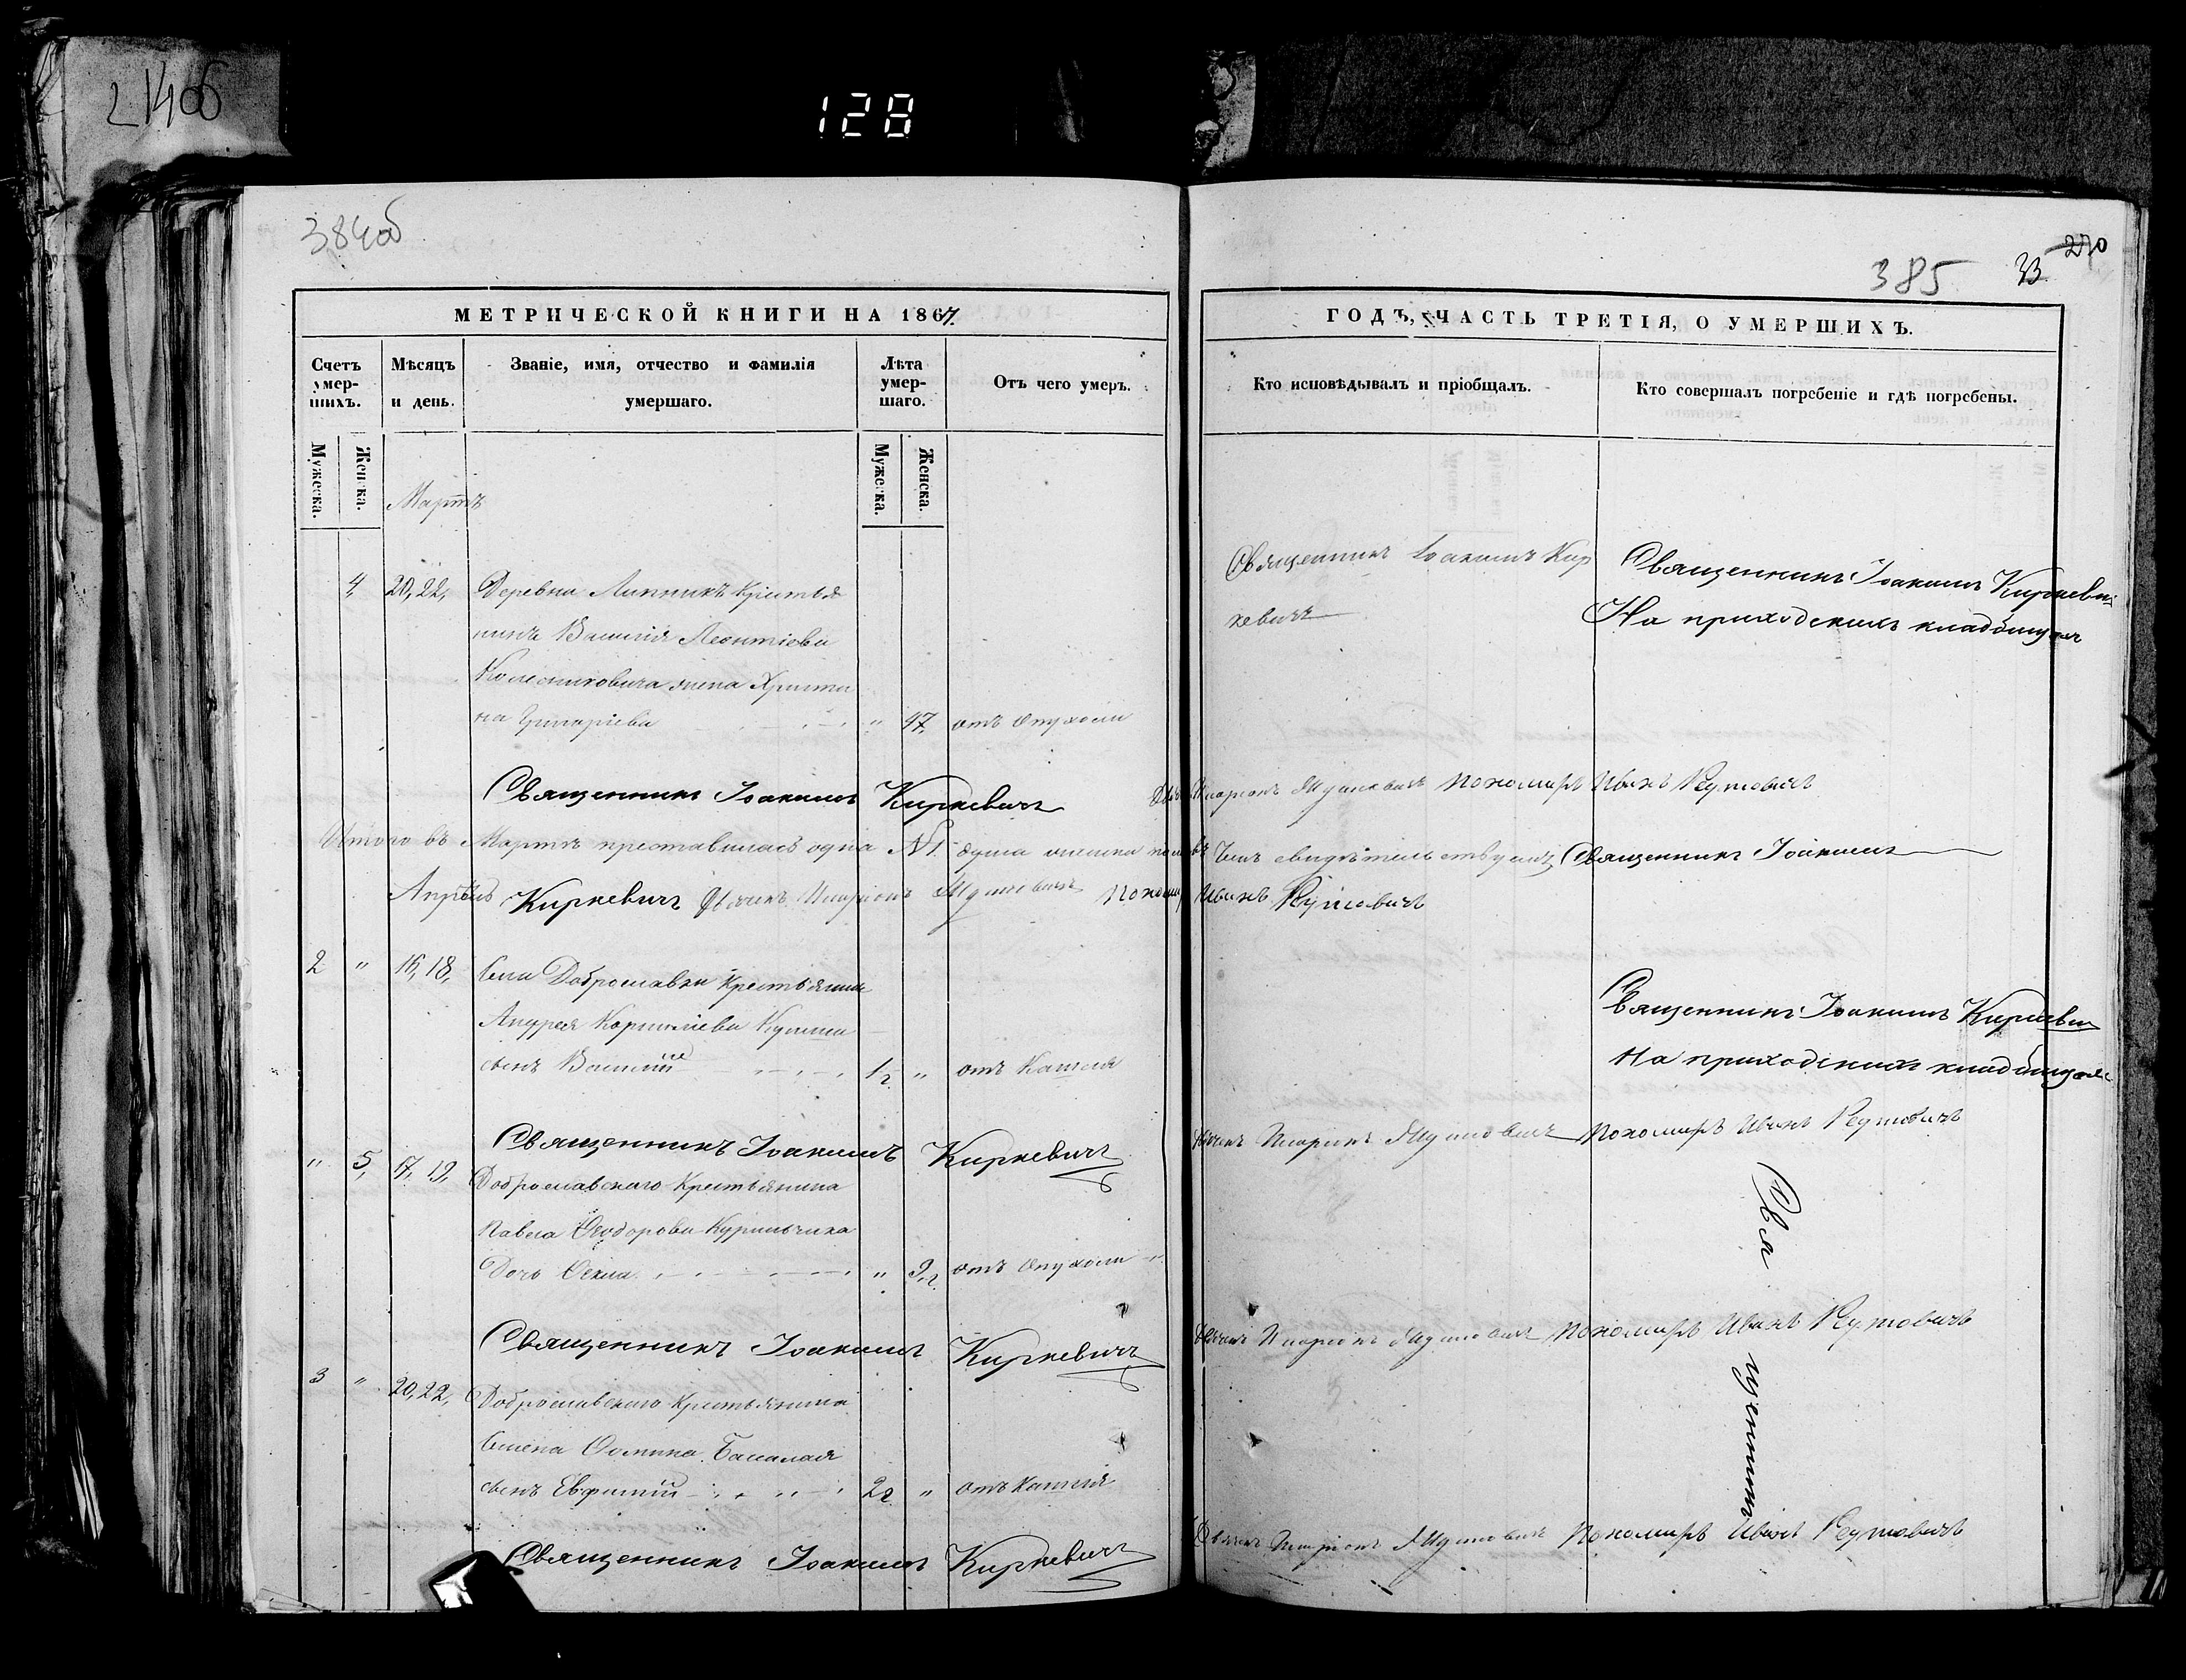 214об
128
384об
385
33
270
МЕТРИЧЕСКОЙ КНИГИ НА 1867.
ГОДЪ, ЧАСТЬ ТРЕТІЯ, О УМЕРШИХЪ.
Счетъ умер-шихъ.
Мужеска.
Женска.
Мѣсяцъ и день.
Званіе, имя, отчество и фамилія умершаго.
Лѣта умер-шаго.
Мужеска.
Женска.
Отъ чего умеръ.
Кто исповѣдывалъ и пріобщалъ.
Кто совершалъ погребеніе и гдѣ погребены.
Мартъ
4, 20, 22, Деревни Липникъ крестья
нина Василія Леонтіева
Колесниковича жена Христи
на Григоріева " 47, отъ опухоли
Священникъ Іоакимъ Кир
кевичъ
Священникъ Іоакимъ Киркевич
На приходскихъ кладбищахъ
Священникъ Іоакимъ Киркевичъ
Иларіонъ Пономарь Иванъ Реутовичъ
Итого въ Мартѣ преставилась одна №1. душа женска пола въ чемъ свидѣтельствуемъ Священникъ Іоакимъ
Апрѣль
Киркевичъ Дьячекъ Иларіонъ Поном Иванъ Реутовичъ
2 " 16, 18, Села Доброславки крестьянина
Андрея Корниліева
сынъ Василій 1/2 " отъ кашля
Священникъ Іоакимъ Киркевич
На приходскихъ кладбищахъ
Священникъ Іоакимъ Киркевичъ
Дьячекъ Иларіонъ Пономарь Иванъ Реутовичъ
" 5, 17, 19, Доброславскаго крестьянина
Павла Ѳеодорова Курильчика
дочь Ѳекла " 9 отъ опухоли
Священникъ Іоакимъ Киркевичъ
Дьячекъ Иларіонъ Пономарь Иванъ Реутовичъ
3 " 20, 22, Доброславскаго крестьянина
Семена Ѳомина
сынъ Евфимій 2 " отъ кашля
Священникъ Іоакимъ Киркевичъ
Дьячекъ Иларіонъ Пономарь Иванъ Реутовичъ
Священникъ